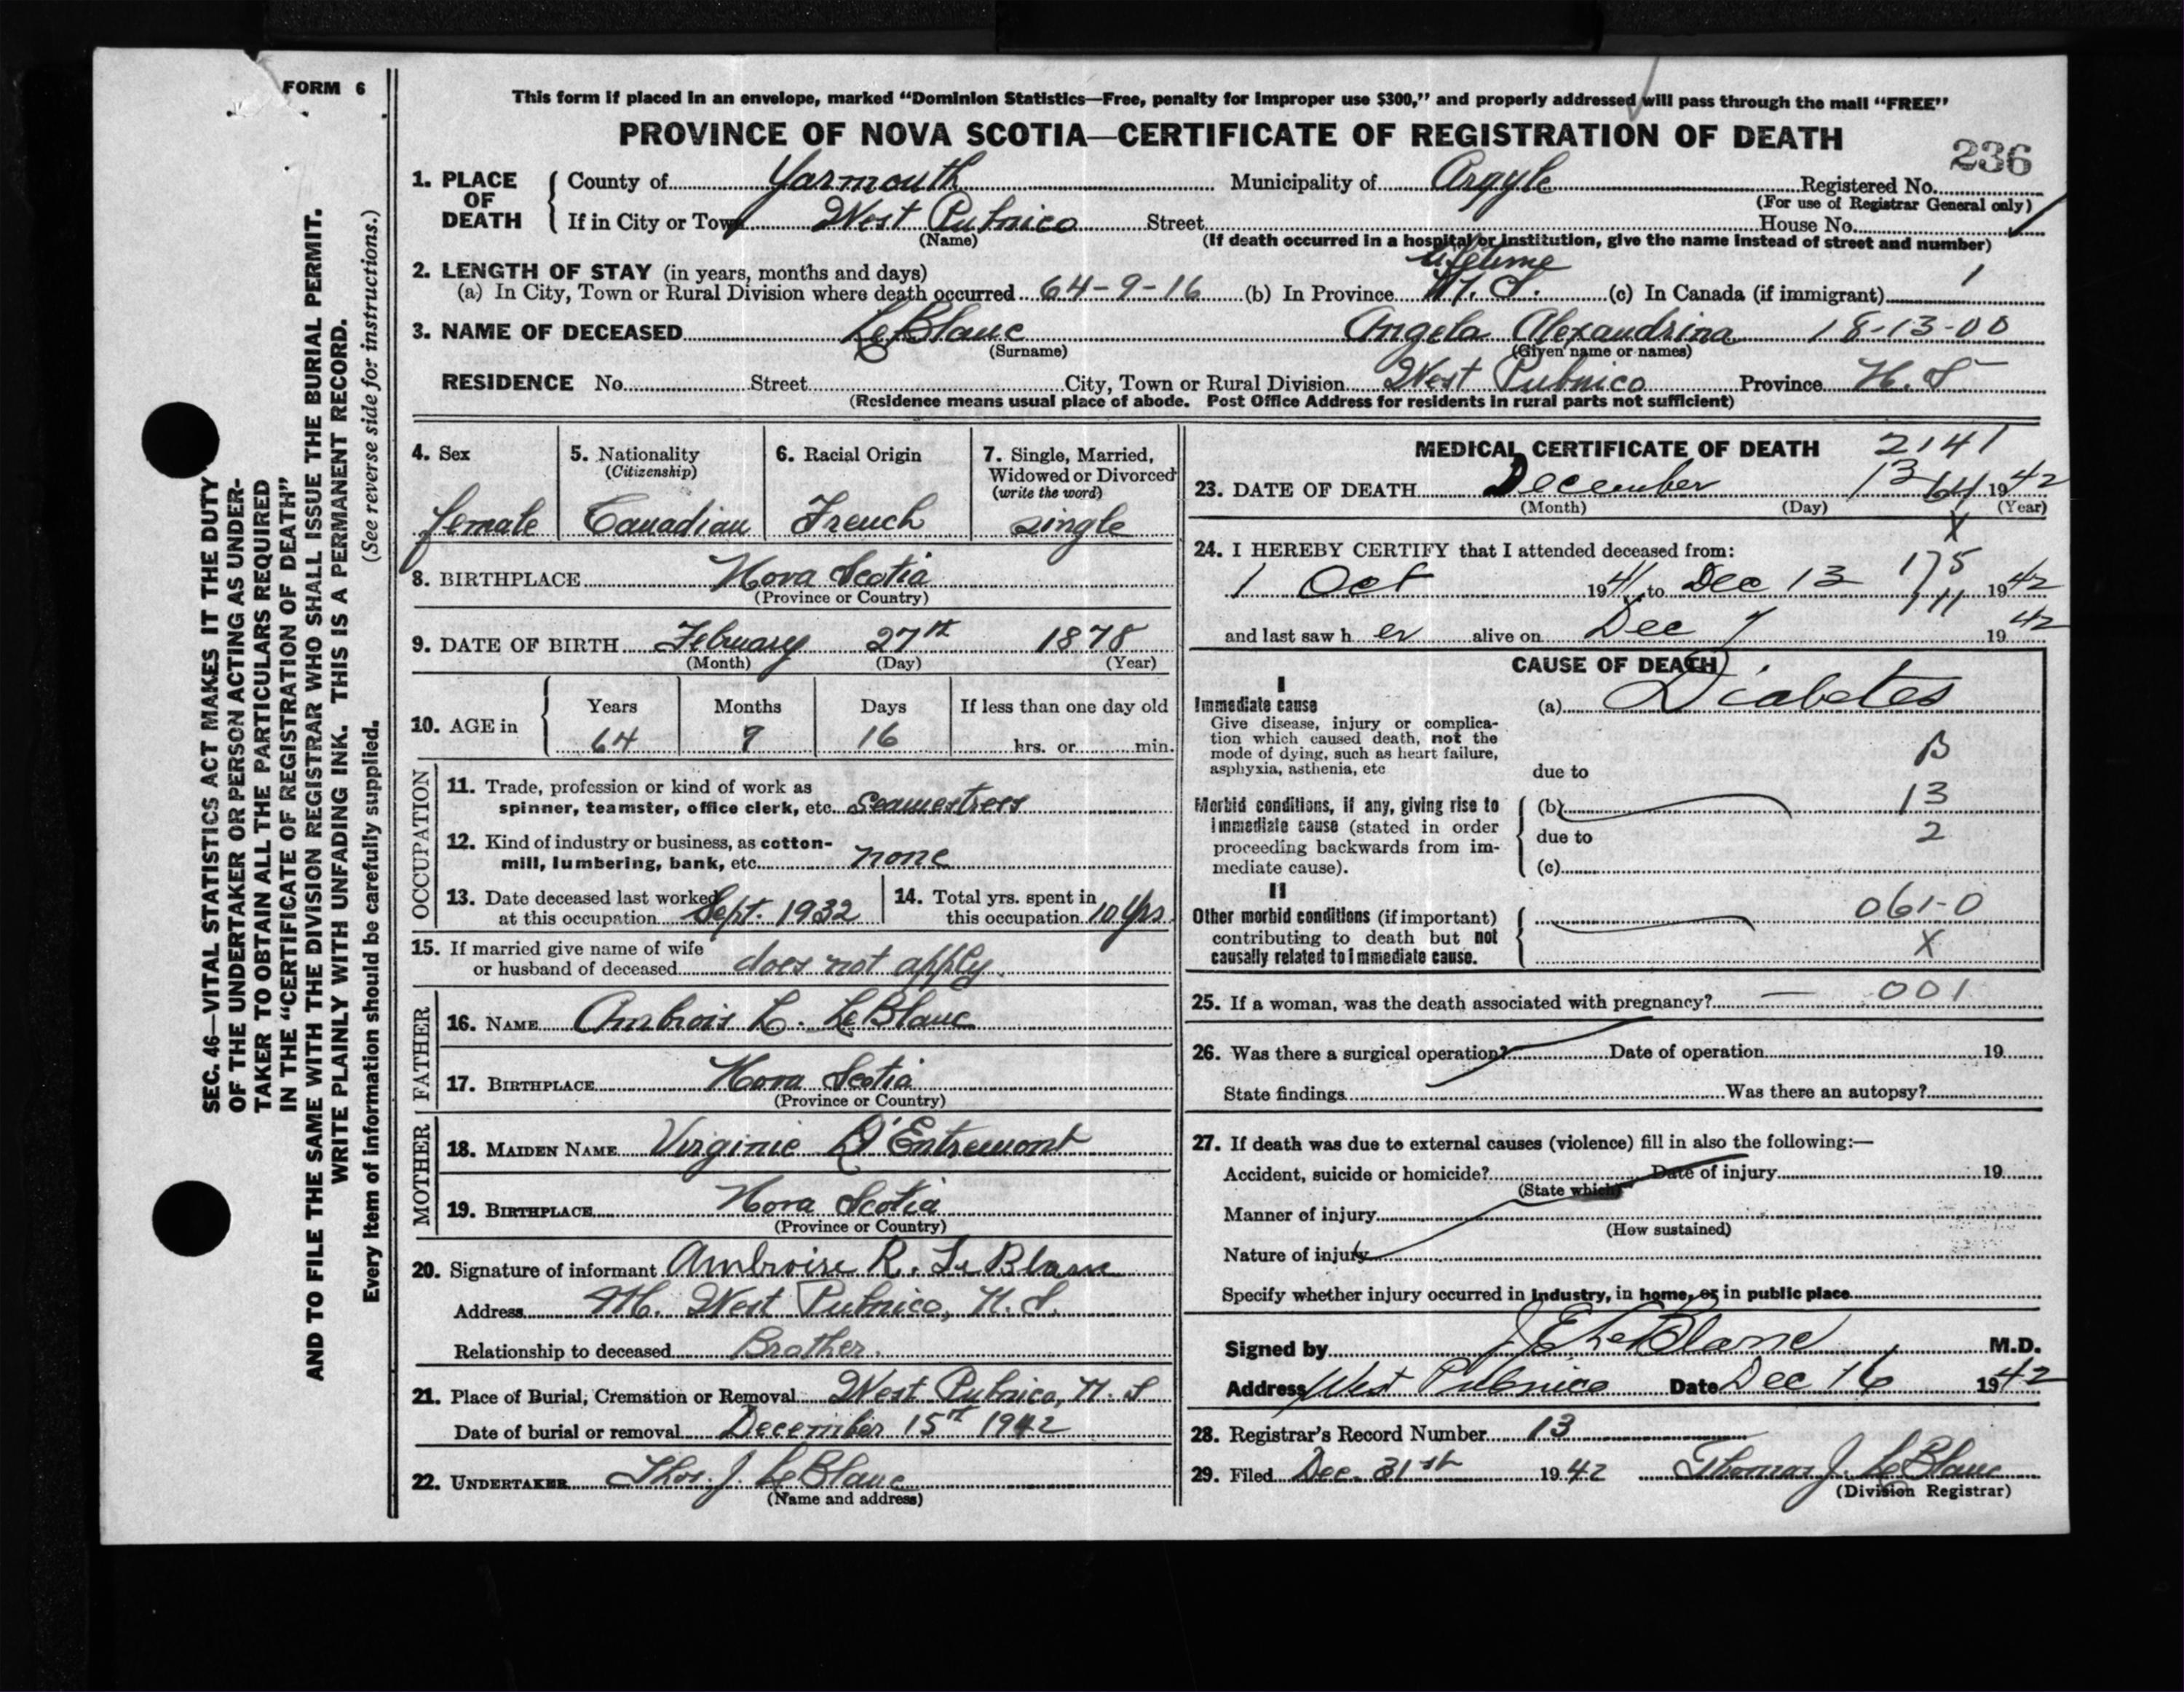 FORM 6
This form if placed in an envelope, marked “Dominion Statistics—Free, penalty for improper use $300,” and properly addressed will pass through the mail “FREE”
PROVINCE OF NOVA SCOTIA—CERTIFICATE OF REGISTRATION OF DEATH
236
1. PLACE OF DEATH County of Yarmouth Municipality of Argyle Registered No.
(For use of Registrar General only)
If in City or Town West Pubnico Street House No.
(Name) (If death occurred in a hospital or institution, give the name instead of street and number)
2. LENGTH OF STAY (in years, months and days) lifetime
(a) In City, Town or Rural Division where death occurred 64-9-16 (b) In Province N.S. (c) In Canada (if immigrant)
3. NAME OF DECEASED LeBlanc Angela Alexandrina 18-13-00
(Surname) (Given name or names)
RESIDENCE No. Street City, Town or Rural Division West Pubnico Province N.S
(Residence means usual place of abode. Post Office Address for residents in rural parts not sufficient)
4. Sex 5. Nationality (Citizenship) 6. Racial Origin 7. Single, Married, Widowed or Divorced (write the word)
female Canadian French single
8. BIRTHPLACE Nova Scotia
(Province or Country)
9. DATE OF BIRTH February 27th 1878
(Month) (Day) (Year)
10. AGE in Years Months Days If less than one day old
64 9 16 hrs. or min.
OCCUPATION
11. Trade, profession or kind of work as
spinner, teamster, office clerk, etc. Seamestress
12. Kind of industry or business, as cotton-
mill, lumbering, bank, etc. none
13. Date deceased last worked at this occupation Sept. 1932
14. Total yrs. spent in this occupation 10 yrs.
15. If married give name of wife
or husband of deceased does not apply.
FATHER
16. NAME Ambrois L. LeBlanc
17. BIRTHPLACE Nova Scotia
(Province or Country)
MOTHER
18. MAIDEN NAME Virginie D'Entremont
19. BIRTHPLACE Nova Scotia
(Province or Country)
20. Signature of informant Ambroise R. LeBlanc
Address M. West Pubnico, N.S.
Relationship to deceased Brother.
21. Place of Burial, Cremation or Removal West Pubnico, N.S
Date of burial or removal December 15th 1942
22. UNDERTAKER Thos. J. LeBlanc
(Name and address)
MEDICAL CERTIFICATE OF DEATH 2141
23. DATE OF DEATH December 13 64 1942
(Month) (Day) (Year)
X
24. I HEREBY CERTIFY that I attended deceased from: 175
1 Oct 1941 to Dec 13 1942
111
and last saw her alive on Dec 7 1942
CAUSE OF DEATH
I
Immediate cause (a) Diabetes
Give disease, injury or complica-
tion which caused death, not the
mode of dying, such as heart failure,
asphyxia, asthenia, etc due to B
Morbid conditions, if any, giving rise to (b) 13
immediate cause (stated in order due to 2
proceeding backwards from im-
mediate cause). (c)
II
Other morbid conditions (if important) 061-0
contributing to death but not X
causally related to immediate cause.
25. If a woman, was the death associated with pregnancy? — 001
26. Was there a surgical operation? Date of operation 19
State findings Was there an autopsy?
27. If death was due to external causes (violence) fill in also the following:—
Accident, suicide or homicide? Date of injury 19
(State which)
Manner of injury
(How sustained)
Nature of injury
Specify whether injury occurred in industry, in home, or in public place
Signed by J E LeBlanc M.D.
Address West Pubnico Date Dec 16 1942
28. Registrar's Record Number 13
29. Filed Dec. 31st 1942 Thomas J. LeBlanc
(Division Registrar)
SEC. 46—VITAL STATISTICS ACT MAKES IT THE DUTY
OF THE UNDERTAKER OR PERSON ACTING AS UNDER-
TAKER TO OBTAIN ALL THE PARTICULARS REQUIRED
IN THE “CERTIFICATE OF REGISTRATION OF DEATH”
AND TO FILE THE SAME WITH THE DIVISION REGISTRAR WHO SHALL ISSUE THE BURIAL PERMIT.
WRITE PLAINLY WITH UNFADING INK. THIS IS A PERMANENT RECORD.
Every item of information should be carefully supplied. (See reverse side for instructions.)